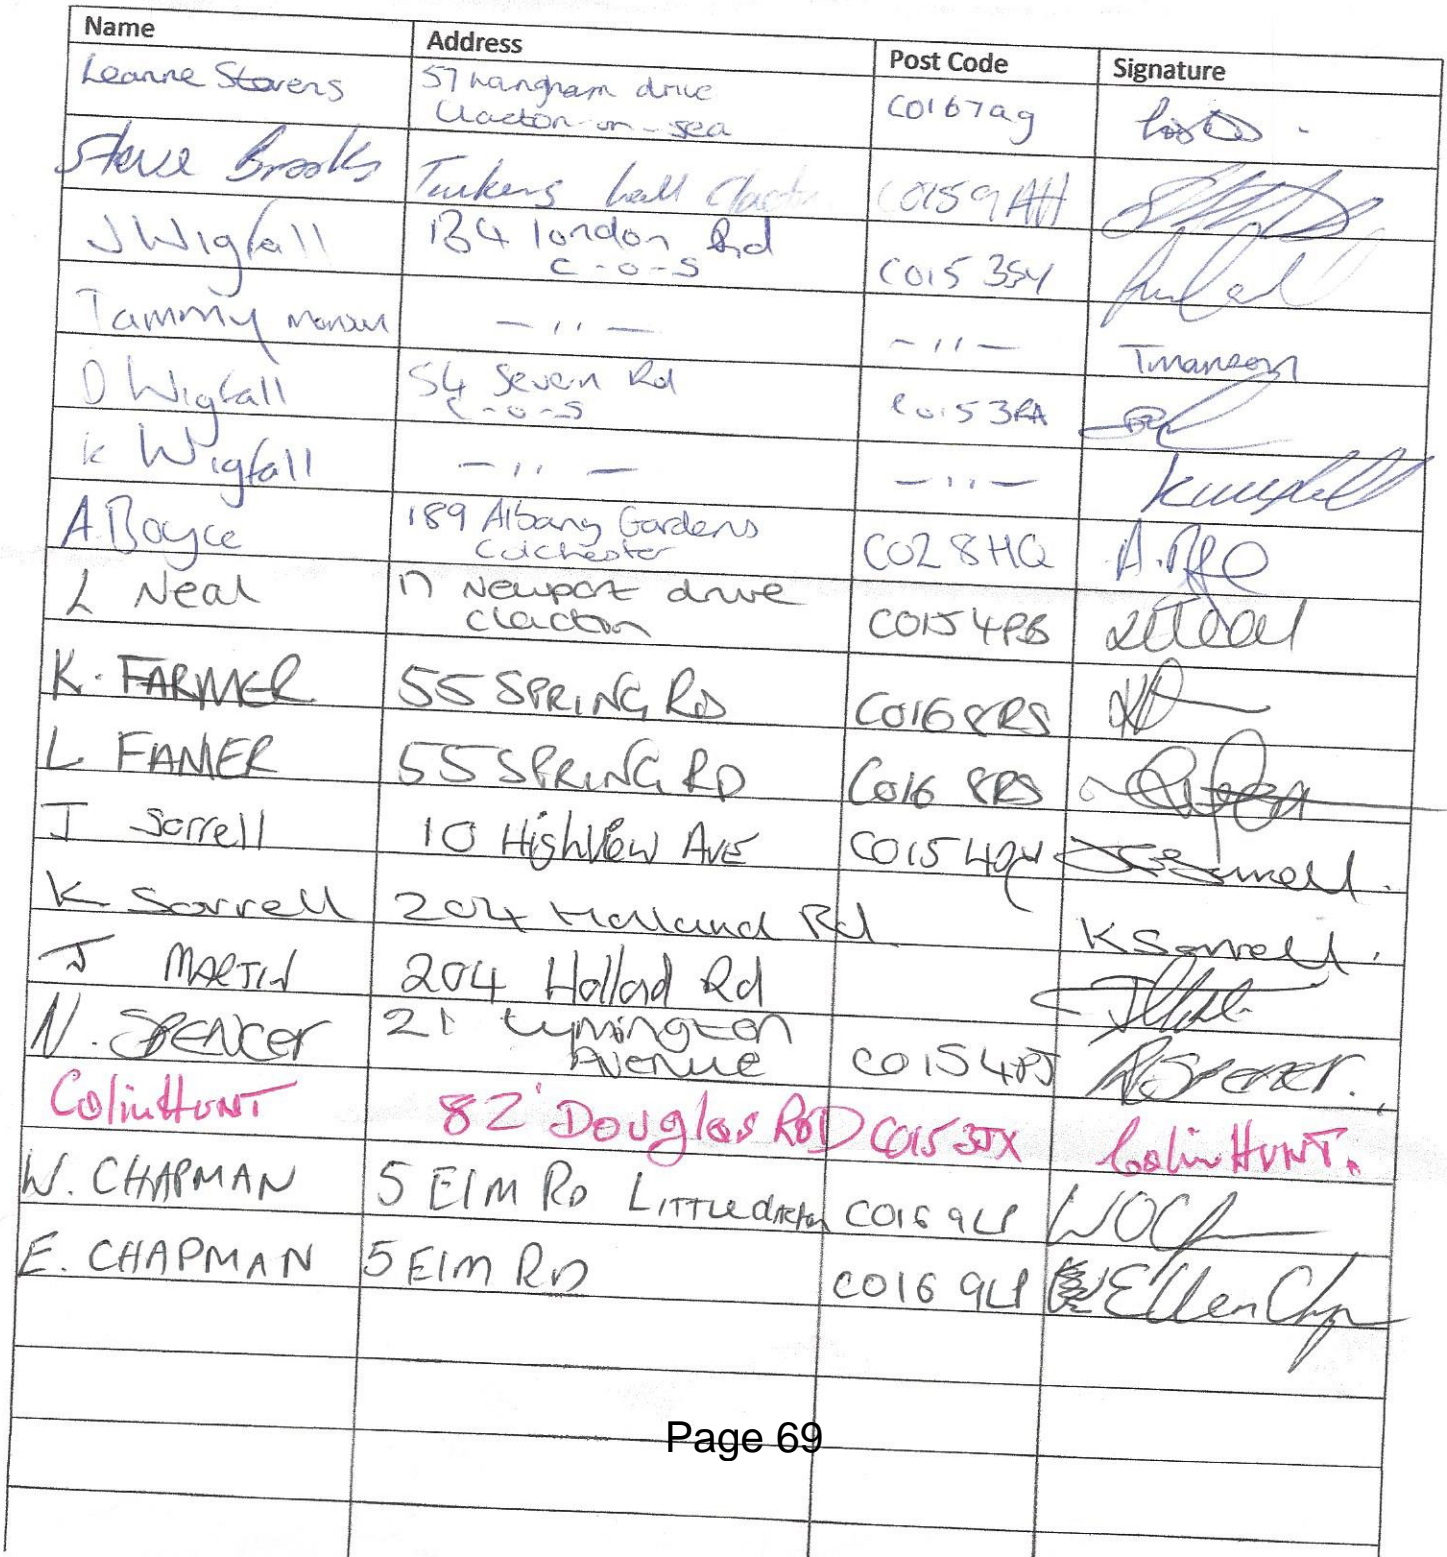 Name Address Post Code Signature
Leanne Stevens 57 Langham drive CO16 7ag
Clacton-on-sea
Steve Brooks Tinkers hall Clacton CO15 9AH
J Wigfall 134 london Rd CO15 3SY
C-O-S
Tammy manson —〃— —〃— Tmanson
D Wigfall 54 Seven Rd CO15 3RA
C-O-S
K Wigfall —〃— —〃— KWigfall
A. Boyce 189 Albany Gardens CO2 8HQ
Colchester
L Neal 17 Newport drive CO15 4PB
clacton
K. FARMER 55 SPRING RD CO16 8RS
L FAMER 55 SPRING RD CO16 8RS
J Sorrell 10 Highview AVE CO15 4QY
K Sorrell 204 Holland Rd K Sorrell.
J MARTIN 204 Hollad Rd
N. SPENCer 21 Lymington CO15 4PJ NSpencer.
Avenue
Colin HUNT 82 Douglas ROD CO15 3JX Colin HUNT.
W. CHAPMAN 5 Elm RD LITTLE clacton CO16 9LP
E. CHAPMAN 5 Elm RD CO16 9LP Ellen
Page 69